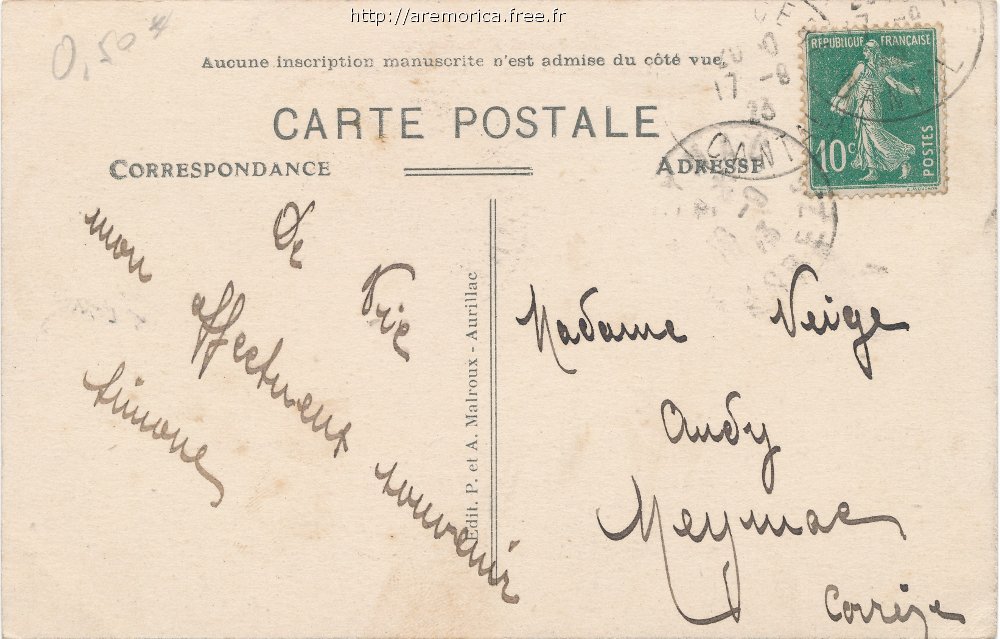 http://aremorica.free.fr
0,50
Aucune inscription manuscrite n'est admise du côté vue
CARTE POSTALE
CORRESPONDANCE
ADRESSE
RÉPUBLIQUE FRANÇAISE
10c
POSTES
17 -8
23
De Vic
mon affectueux souvenir
Simone
Edit. P. et A. Malroux - Aurillac
Madame Veige
Andy
Meymac
Corrèze